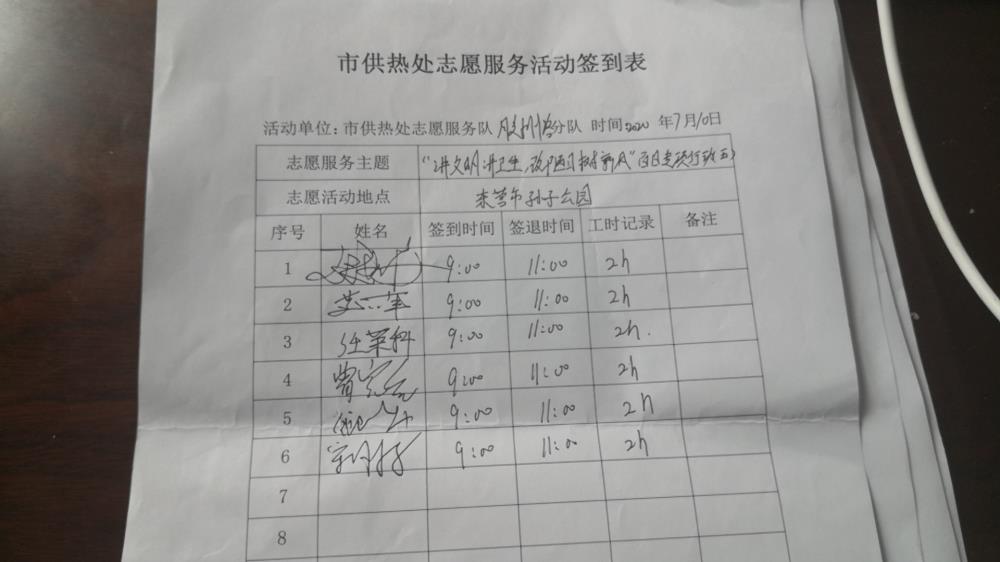 市供热处志愿服务活动签到表
活动单位：市供热处志愿服务队 胶州路分队 时间：2020 年7月10日
志愿服务主题 “讲文明讲卫生，改陋习树新风”百日专项行动(五)
志愿活动地点 东营市孙子公园
序号 姓名 签到时间 签退时间 工时记录 备注
1 9:00 11:00 2h
2 9:00 11:00 2h
3 任荣科 9:00 11:00 2h.
4 9:00 11:00 2h
5 9:00 11:00 2h
6 9:00 11:00 2h
7
8